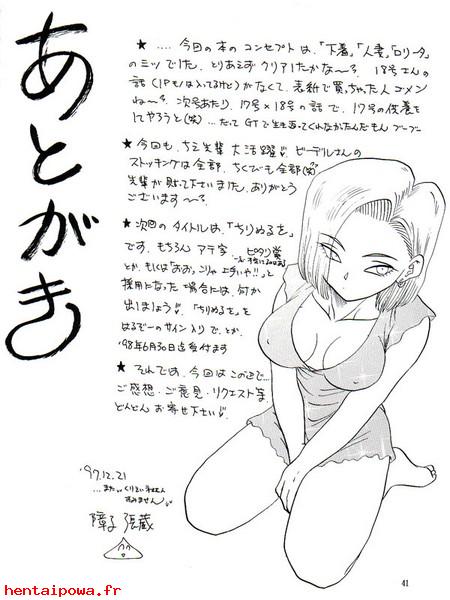 あとがき
★ .... 今回の本のコンセプトは、「下着」「人妻」「ロリータ」
のミツでした。とりあえずクリアしたかな〜?。18号さんの
話(1Pもは入ってるけど)がなくて、表紙で買っちゃった人ゴメン
ね〜?。次号あたり、17号×18号の話で、17号の復養を
してやろうと(笑)...だってGTで生き返ってくれなかったんだもんブーブー
★ 今回も、ちえ先輩大活躍♡。ビーデルさんの
ストッキングは全部、ちくびも全部(笑)
先輩が貼って下さいました。ありがとう
ございます〜?。
★ 次回のタイトルは、「ちりぬるを」
です。もちろんアテ字 ピタリ賞
とか、もしくは「おお、こりゃ上手いや!!」と
採用になった場合には、何か
出しましょう♡。「ちりぬるを」を
はるぞーのサイン入りで、とか。
'98年6月30日迄受付ます
★ それでは、今回はこの辺で...
ご感想・ご意見・リクエスト等、
どんどんお寄せ下さい♡。
'97.12.21
...また
すみません
障子張蔵
41
hentaipowa.fr